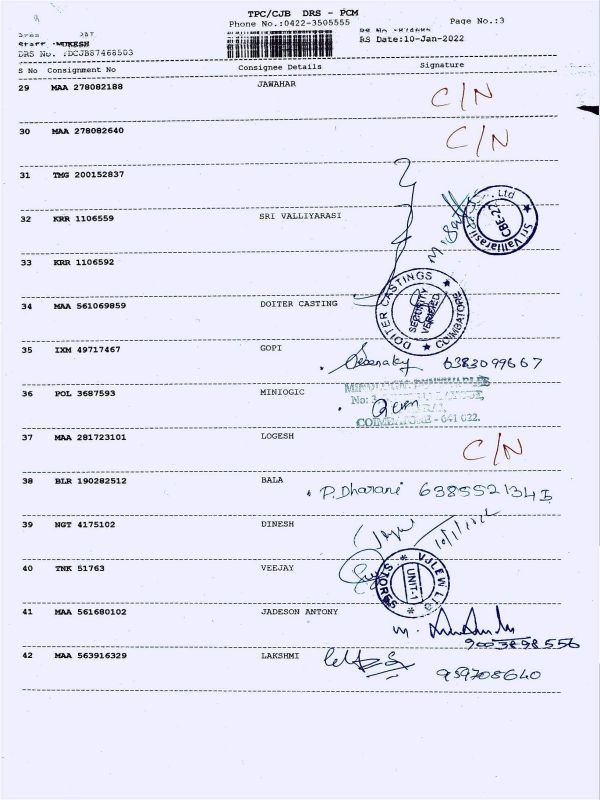 TPC/CJB DRS - PCM
Phone No.:0422-3505555 Page No.:3
Staff MUKESH RS Date:10-Jan-2022
DRS No. DCJB87468503
S No Consignment No Consignee Details Signature
29 MAA 278082188 JAWAHAR C/N
30 MAA 278082640 C/N
31 TMG 200152837
32 KRR 1106559 SRI VALLIYARASI
33 KRR 1106592
34 MAA 561069859 DOITER CASTING
DOITER CASTINGS ★ COIMBATORE ★
SECURITY
VERIFIED
35 IXM 49717467 GOPI 6383099667
36 POL 3687593 MINIOGIC
No: 3
COIMBATORE - 641 022.
37 MAA 281723101 LOGESH C/N
38 BLR 190282512 BALA P. Dharani
39 NGT 4175102 DINESH
40 TNK 51763 VEEJAY
STORES
UNIT-1
41 MAA 561680102 JADESON ANTONY
9003898556
42 MAA 563916329 LAKSHMI
959708640